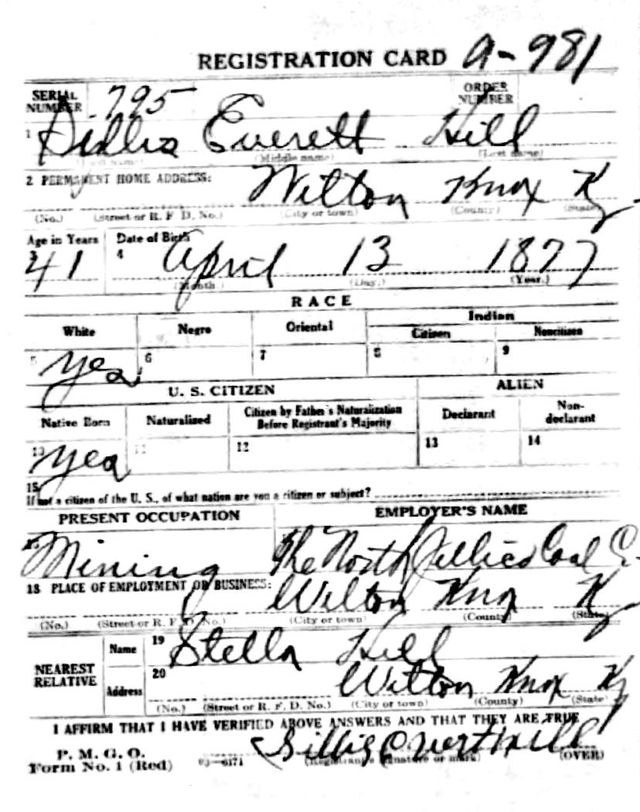 REGISTRATION CARD A-981
SERIAL NUMBER 795 ORDER NUMBER
1 Everett Hill
(First name) (Middle name) (Last name)
2 PERMANENT HOME ADDRESS: Wilton Knox Ky
(No.) (Street or R. F. D. No.) (City or town) (County) (State)
Age in Years Date of Birth
3 41 4 April 13 1877
(Month.) (Day.) (Year.)
RACE
White Negro Oriental Indian
Citizen Noncitizen
5 yes 6 7 8 9
U. S. CITIZEN ALIEN
Native Born Naturalized Citizen by Father's Naturalization Before Registrant's Majority Declarant Non-declarant
10 yes 11 12 13 14
15
If not a citizen of the U. S., of what nation are you a citizen or subject?
PRESENT OCCUPATION EMPLOYER'S NAME
16 Mining The North Jellico Coal C.
18 PLACE OF EMPLOYMENT OR BUSINESS: Wilton Knox Ky
(No.) (Street or R. F. D. No.) (City or town) (County) (State)
NEAREST RELATIVE Name 19 Stella Hill
Address 20 Wilton Knox Ky
(No.) (Street or R. F. D. No.) (City or town) (County) (State)
I AFFIRM THAT I HAVE VERIFIED ABOVE ANSWERS AND THAT THEY ARE TRUE
P. M. G. O.
Form No. 1 (Red) 03-6171 Hill
(Registrant's signature or mark) (OVER)